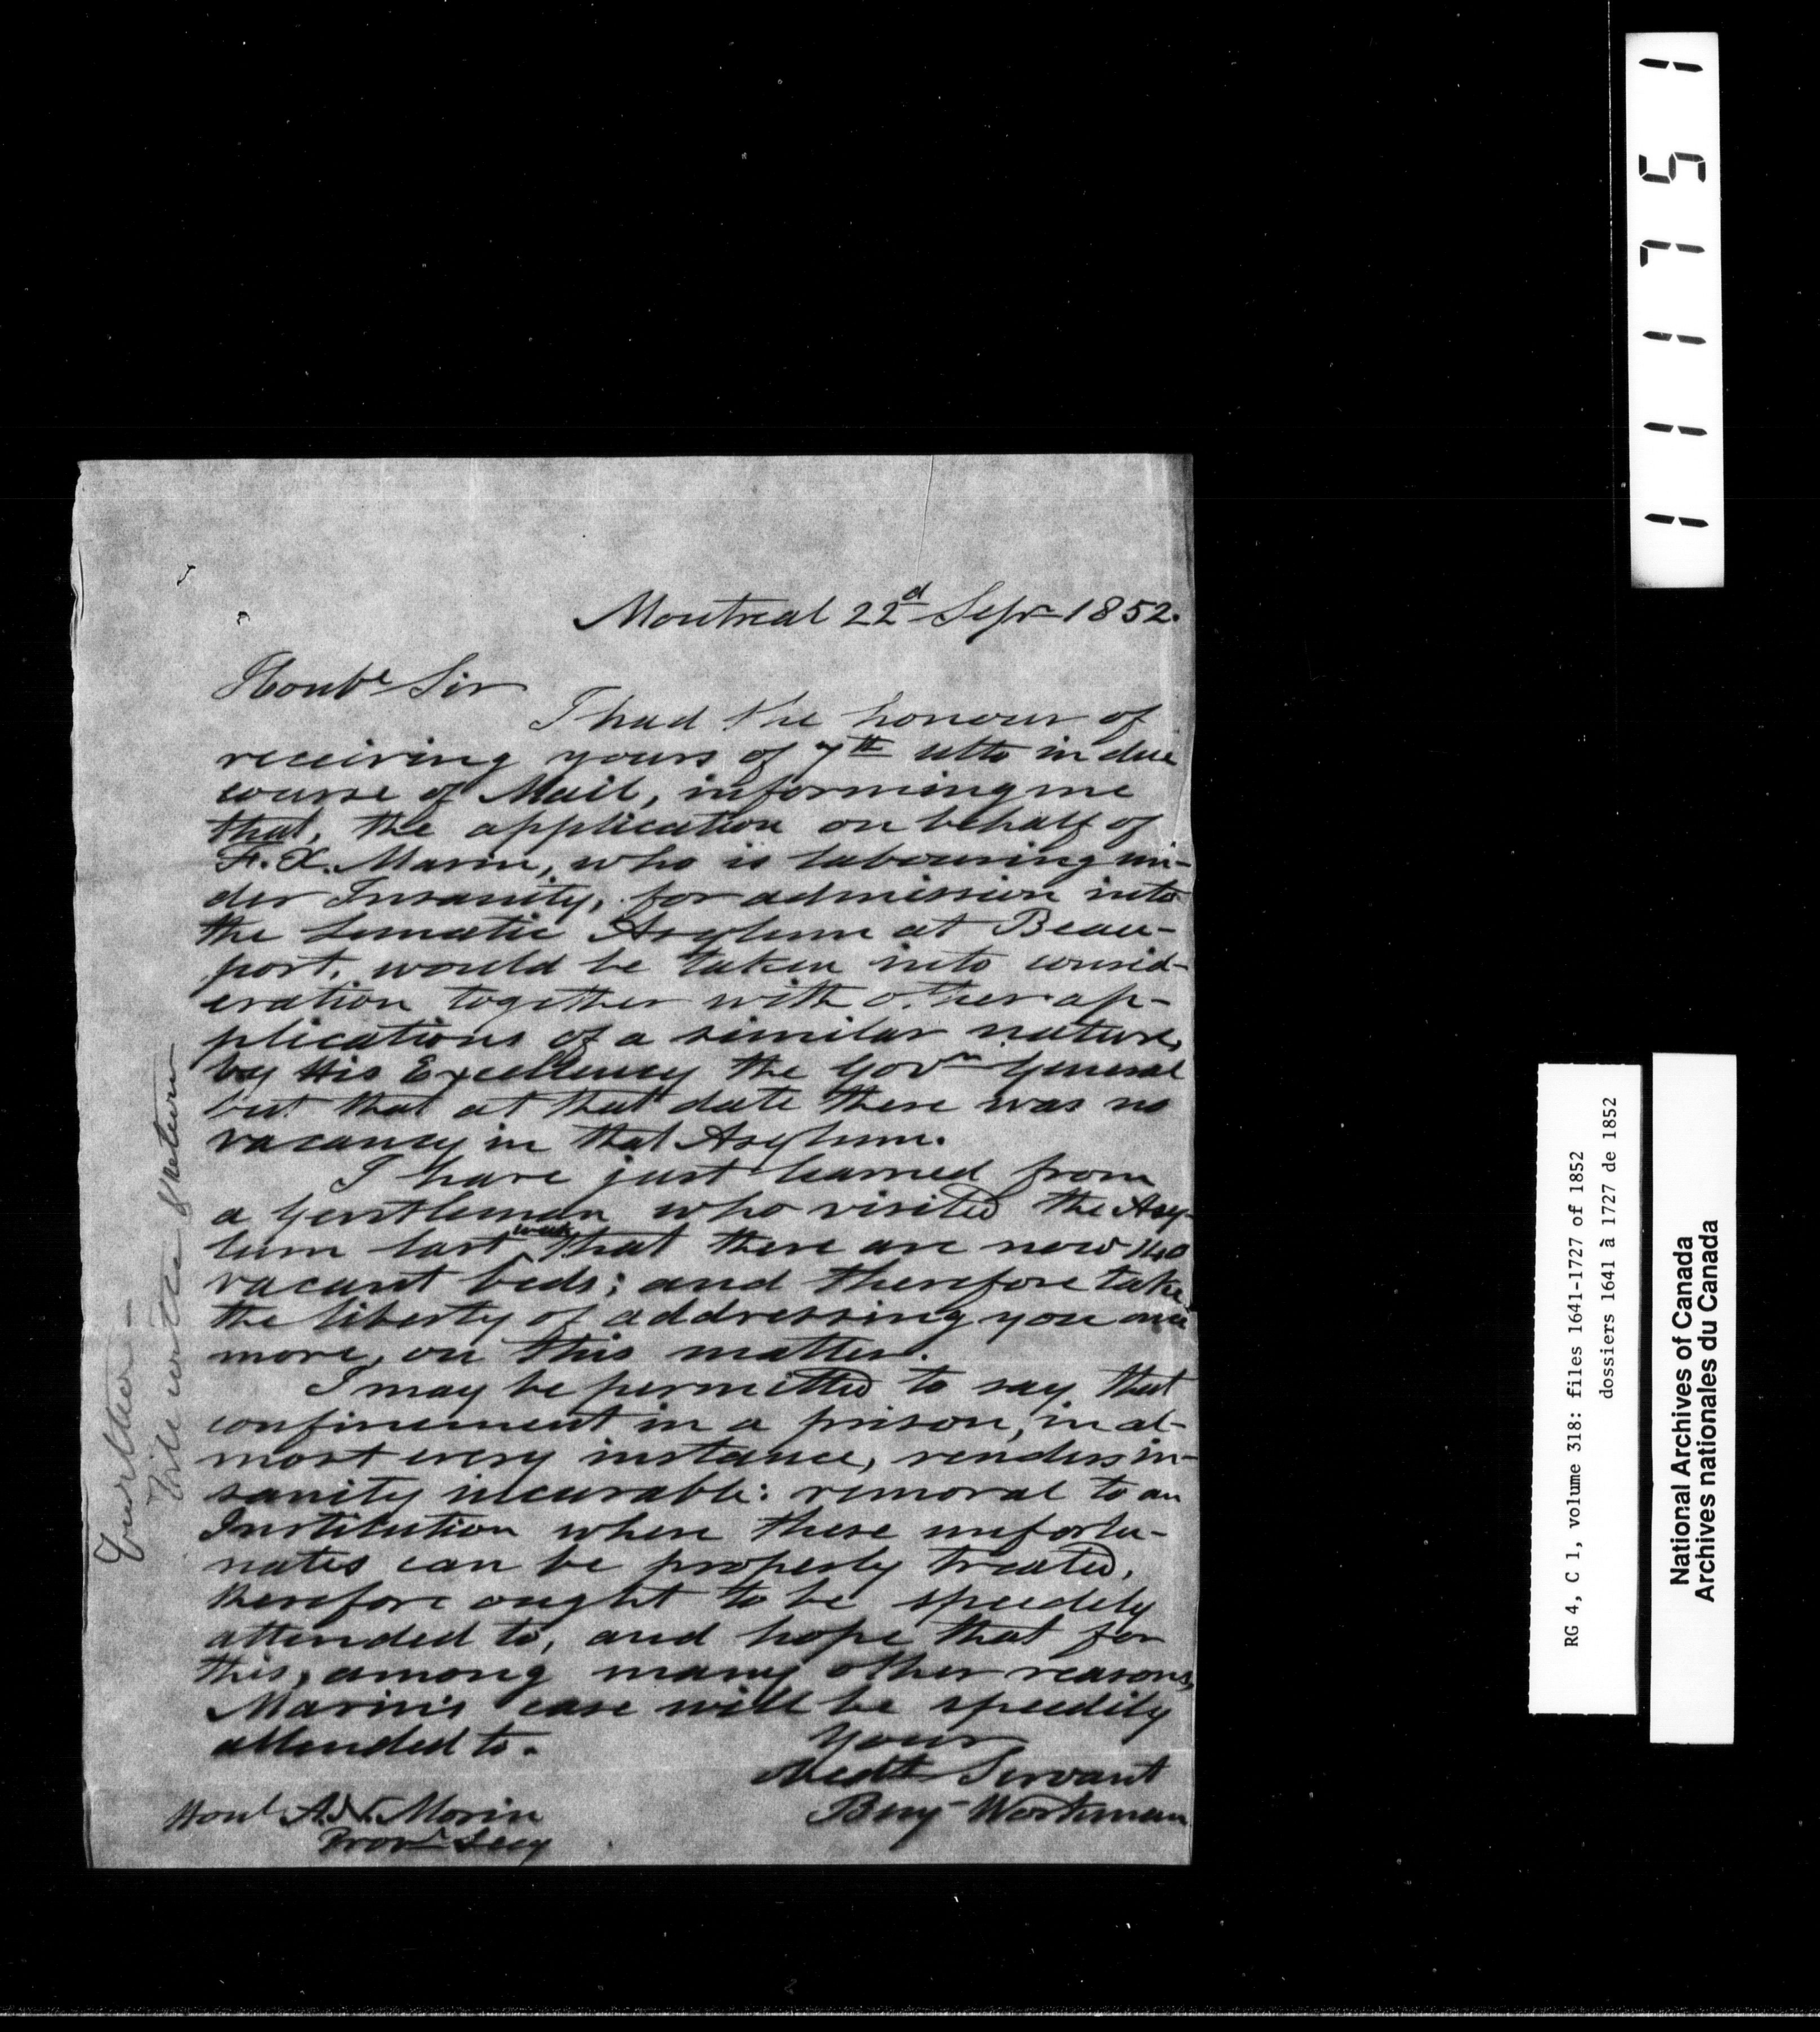 Montreal 22d Sepr 1852.
Honble Sir
I had the honour of
receiving yours of 7th ulto in due
course of Mail, informing me
that, the application on behalf of
F. X. Marin, who is labouring un-
der Insanity, for admission into
the Lunatic Asylum at Beau-
port, would be taken into consid-
eration together with other ap-
plications of a similar nature,
by His Excellency the Govr General
but that at that date there was no
vacancy in that Asylum.
I have just learned from
a gentleman who visited the Asy-
lum last week that there are now 140
vacant beds; and therefore take
the liberty of addressing you once
more, on this matter.
I may be permitted to say that
confinement in a prison, in al-
most every instance, renders in-
sanity incurable: removal to an
Institution where these unfortu-
nates can be properly treated,
therefore ought to be speedely
attended to, and hope that for
this, among many other reasons,
Marin's case will be speedily
attended to.
Your
Obedt Servant
Benj Workman
Honl A. N. Morin
Provl Secy
File
111751
RG 4, C 1, volume 318: files 1641-1727 of 1852
dossiers 1641 à 1727 de 1852
National Archives of Canada
Archives nationales du Canada